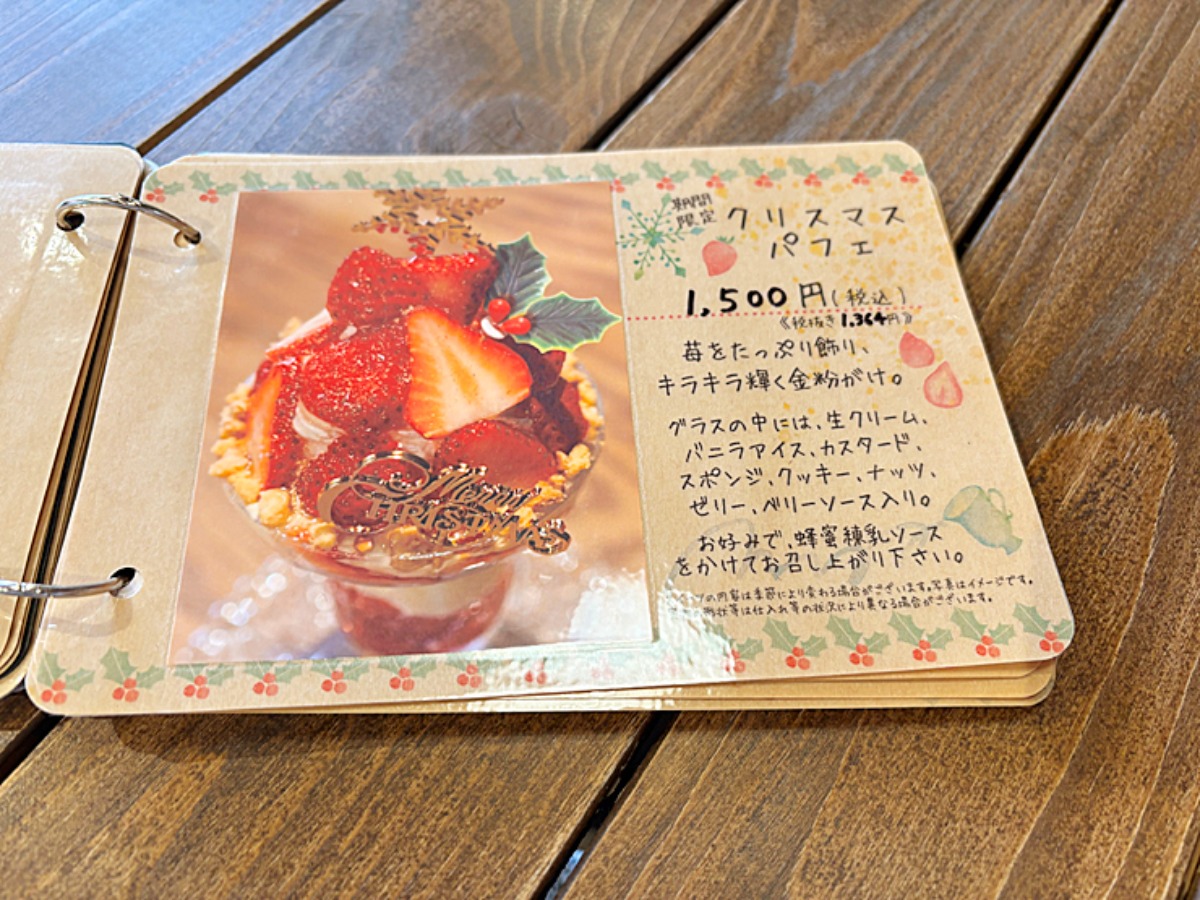 期間
限定
クリスマス
パフェ
1,500円(税込)
《税抜き1,364円》
苺をたっぷり飾り、
キラキラ輝く金粉がけ。
グラスの中には、生クリーム、
バニラアイス、カスタード、
スポンジ、クッキー、ナッツ、
ゼリー、ベリーソース入り。
お好みで、蜂蜜練乳ソース
をかけてお召し上がり下さい。
の内容は季節により変わる場合がございます。写真はイメージです。
形状等は仕入れ等の状況により異なる場合がございます。
Merry
CHRISTMAS